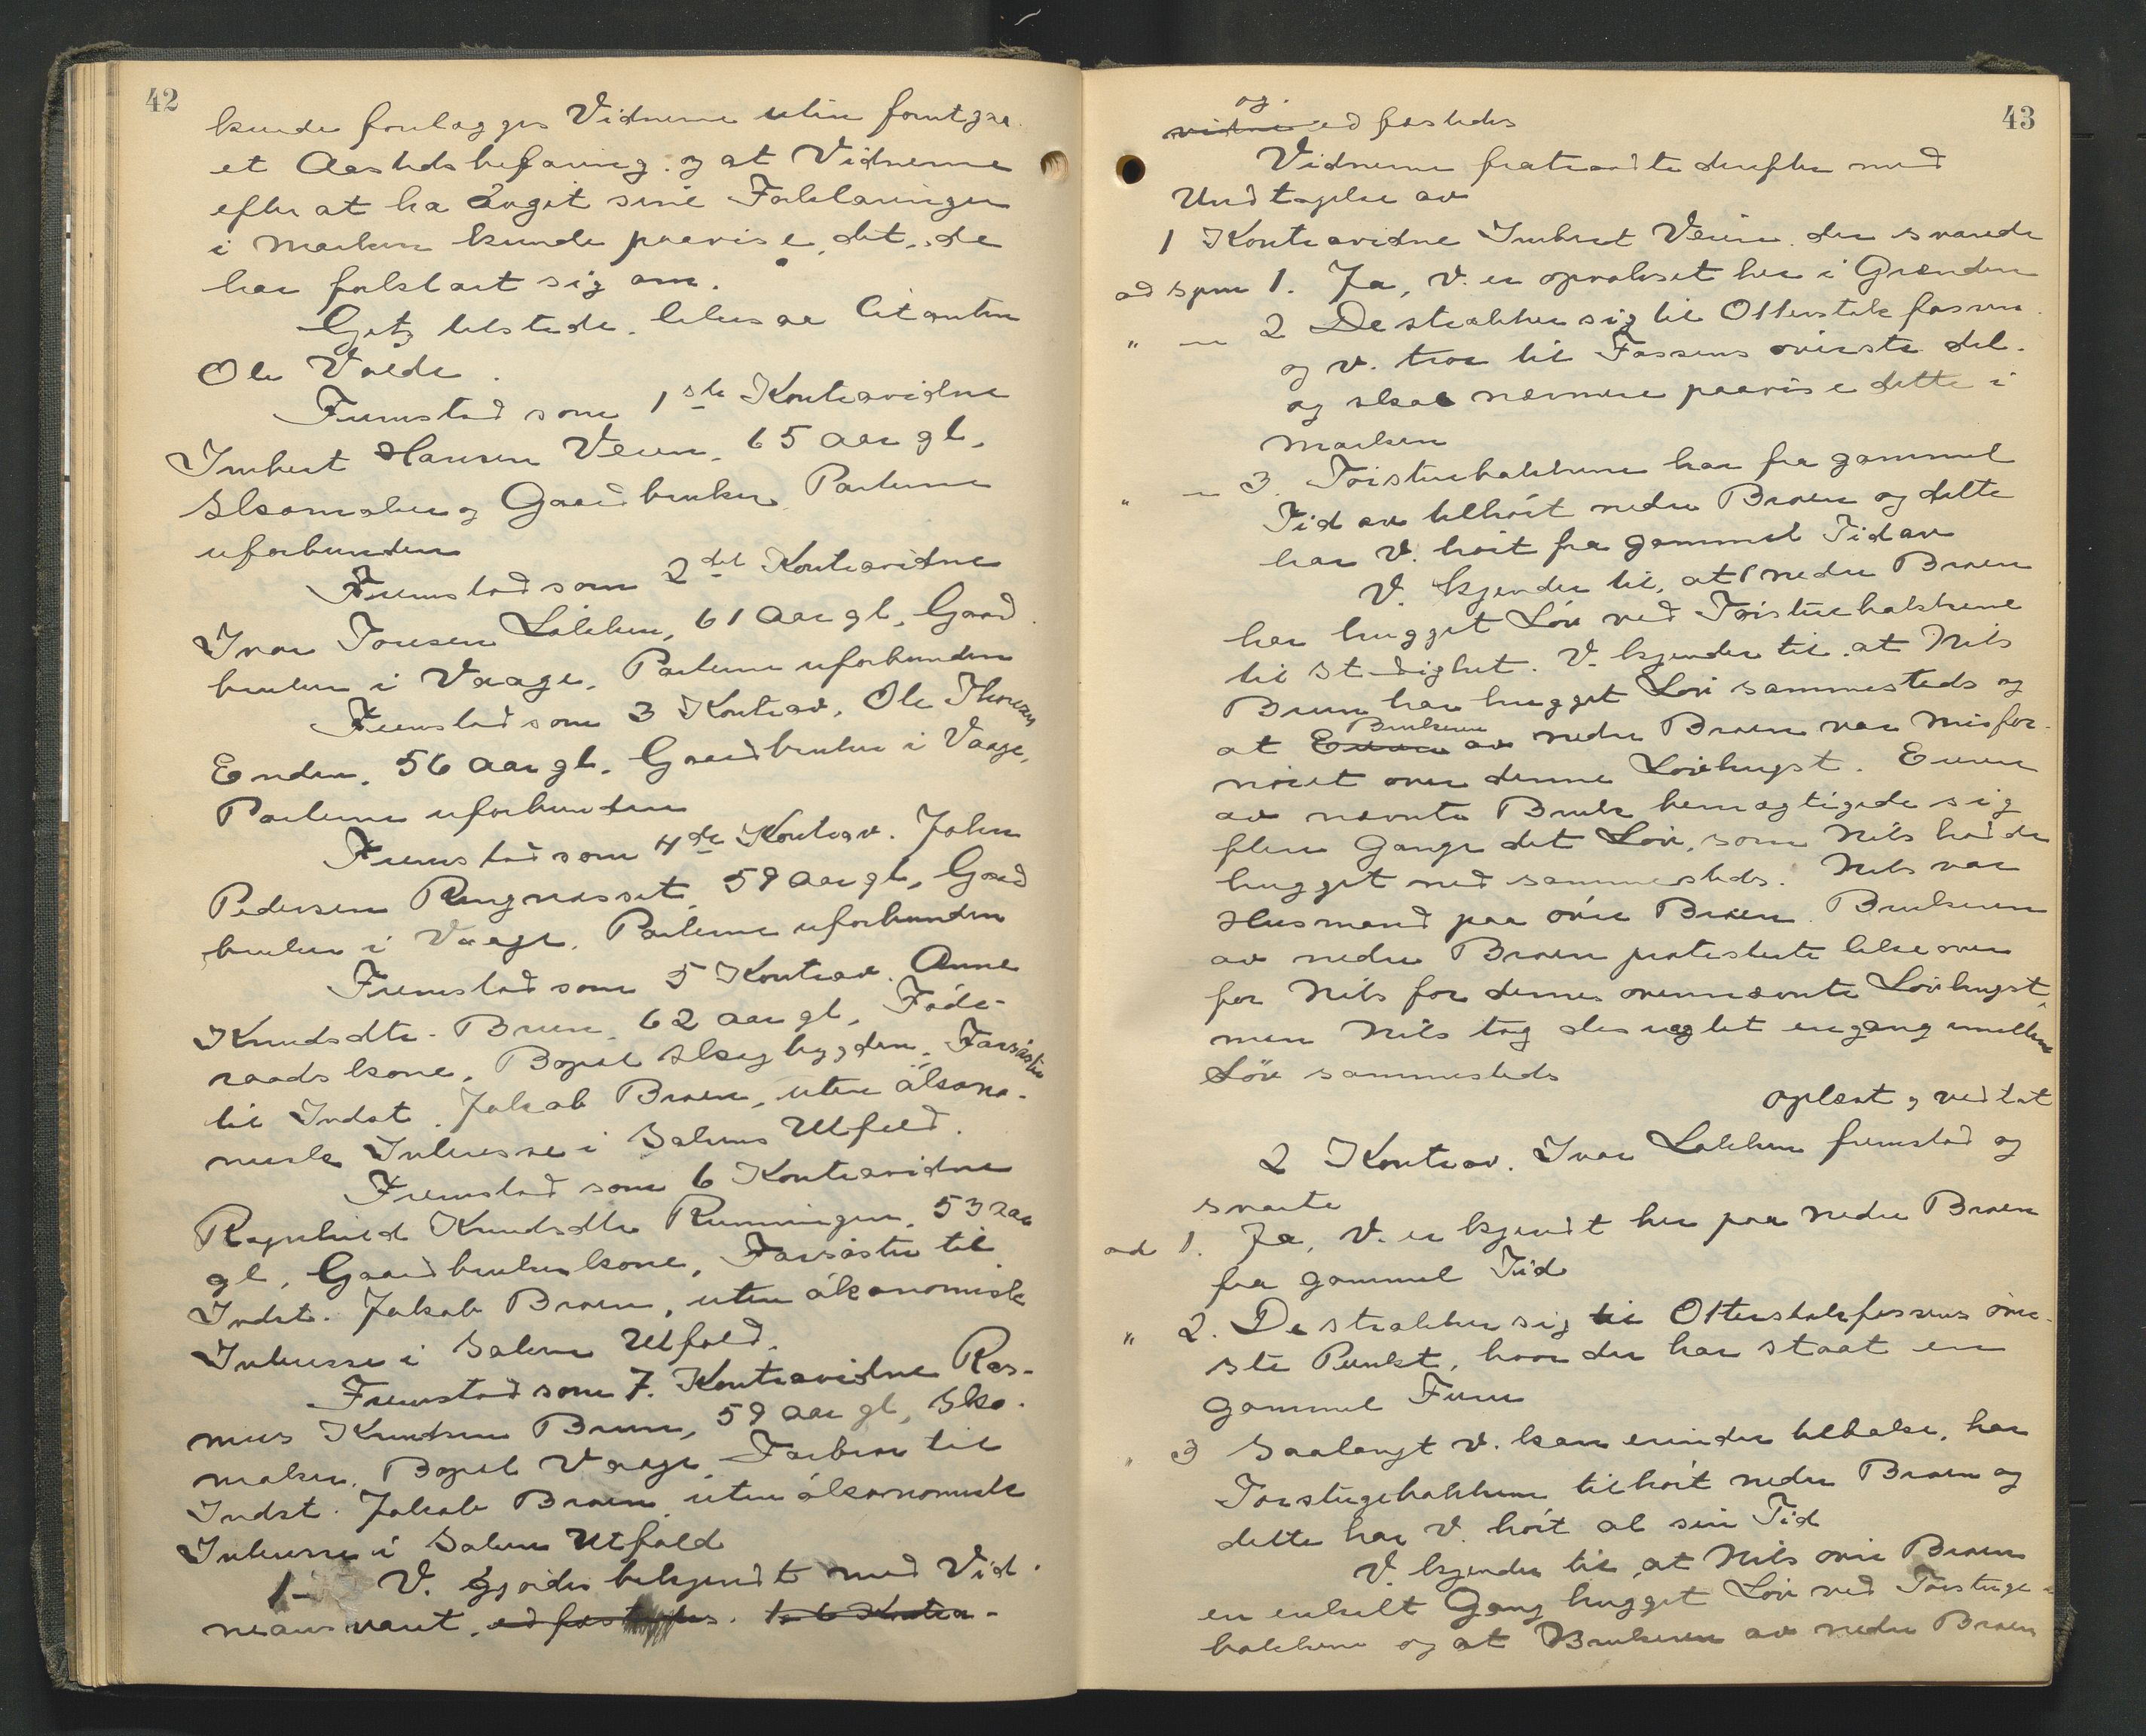 42
kunde forelægges Vidnerne uten foretgaa-
et Aastedsbefaring og at Vidnerne
efter at ha avgit sine Forklaringer
i Marken kunde paavise det, de
har forklart sig om.
Gotz tilstede likesaa Citanten
Ole Valde.
Fremstod som 1ste Kontravidne
Imbert Hansen Veien, 65 aar gl.
Skomaker og Gaardbruker Parterne
uforbunden
Fremstod som 2det Kontravidne
Ivar Toresen Løkken, 61 aar gl, Gaard
bruker i Vaage, Parterne uforbunden
Fremstod som 3 Kontrav. Ole Thoresen
Enden, 56 aar gl. Gaardbruker i Vaage,
Parterne uforbunden
Fremstod som 4de Kontrav. John
Pedersen Rangnesset, 59 aar gl, Gaard
bruker i Vaage. Parterne uforbunden
Fremstod som 5 Kontrav. Anne
Knudsdtr. Bruen 62 aar gl, Føde-
raadskone, Bopæl Skogbygden, Farsøster
til Indst. Jakob Bruen, uten økono-
misk Interesse i Sakens Utfald.
Fremstod som 6 Kontravidne
Ragnhild Knudsdtr Rumningen, 53 aar
gl, Gaardbrukerkone, Farsøster til
Indst. Jakob Bruen, uten økonomisk
Interesse i Sakens Utfald.
Fremstod som 7. Kontravidne Ras-
mus Knudsen Bruen, 59 aar gl, Sko-
maker, Bopæl Vaage, Farbror til
Indst. Jakob Bruen uten økonomisk
Interesse i Sakens Utfald
1- V. gjordes bekjendt med Vid-
neansvaret, edfæstedes. 1-6 Kontra-
43
og
vidne edfæstedes
Vidnerne fratraadte derefter med
Undtagelse av
1 Kontravidne Imbert Veien, der svarede
ad spm 1. Ja, V. er opvokset her i Grænden
" - 2 De strækker sig til Otterstekfossen
og v. tror til Fossens øverste del
og skal nærmere paavise dette i
Marken
" - 3. Toisturbakkene har fra gammel
Tid av tilhørt nedre Bruen og dette
har V. hørt fra gammel Tid av
V. kjender til, at nedre Bruen
har hugget Løv ved Toisturbakkene
til Stadighet. V. kjender til at Nils
Bruen har hugget Løv sammesteds og
Brukeren
at Eieren av nedre Bruen var misfor-
nøiet over denne Løvhugst. Eieren
av nævnte Bruk bemægtigede sig
flere Gange det Løv, som Nils hadde
hugget ned sammesteds. Nils var
Husmand paa øvre Bruen. Brukeren
av nedre Bruen protesterte likeover
for Nils for dennes ovennævnte Løvhugst,
men Nils tog desuagtet engang imellem
Løv sammesteds
oplæst og vedtat
2 Kontrav. Ivar Løkken fremstod og
svarte
ad 1. Ja, V. er kjendt her paa nedre Bruen
fra gammel Tid
" 2. De strækker sig til Otterstekfossens øver-
ste Punkt, hvor der har staat en
gammel Furu
" 3 Saalangt V. kan erindre tilbake, har
Torstugebakkene tilhørt nedre Bruen og
dette har V. hørt al sin Tid
V. kjender til, at Nils øvre Bruen
en enkelt Gang hugget Løv ved Torstuge-
bakkene og at Brukeren av nedre Bruen